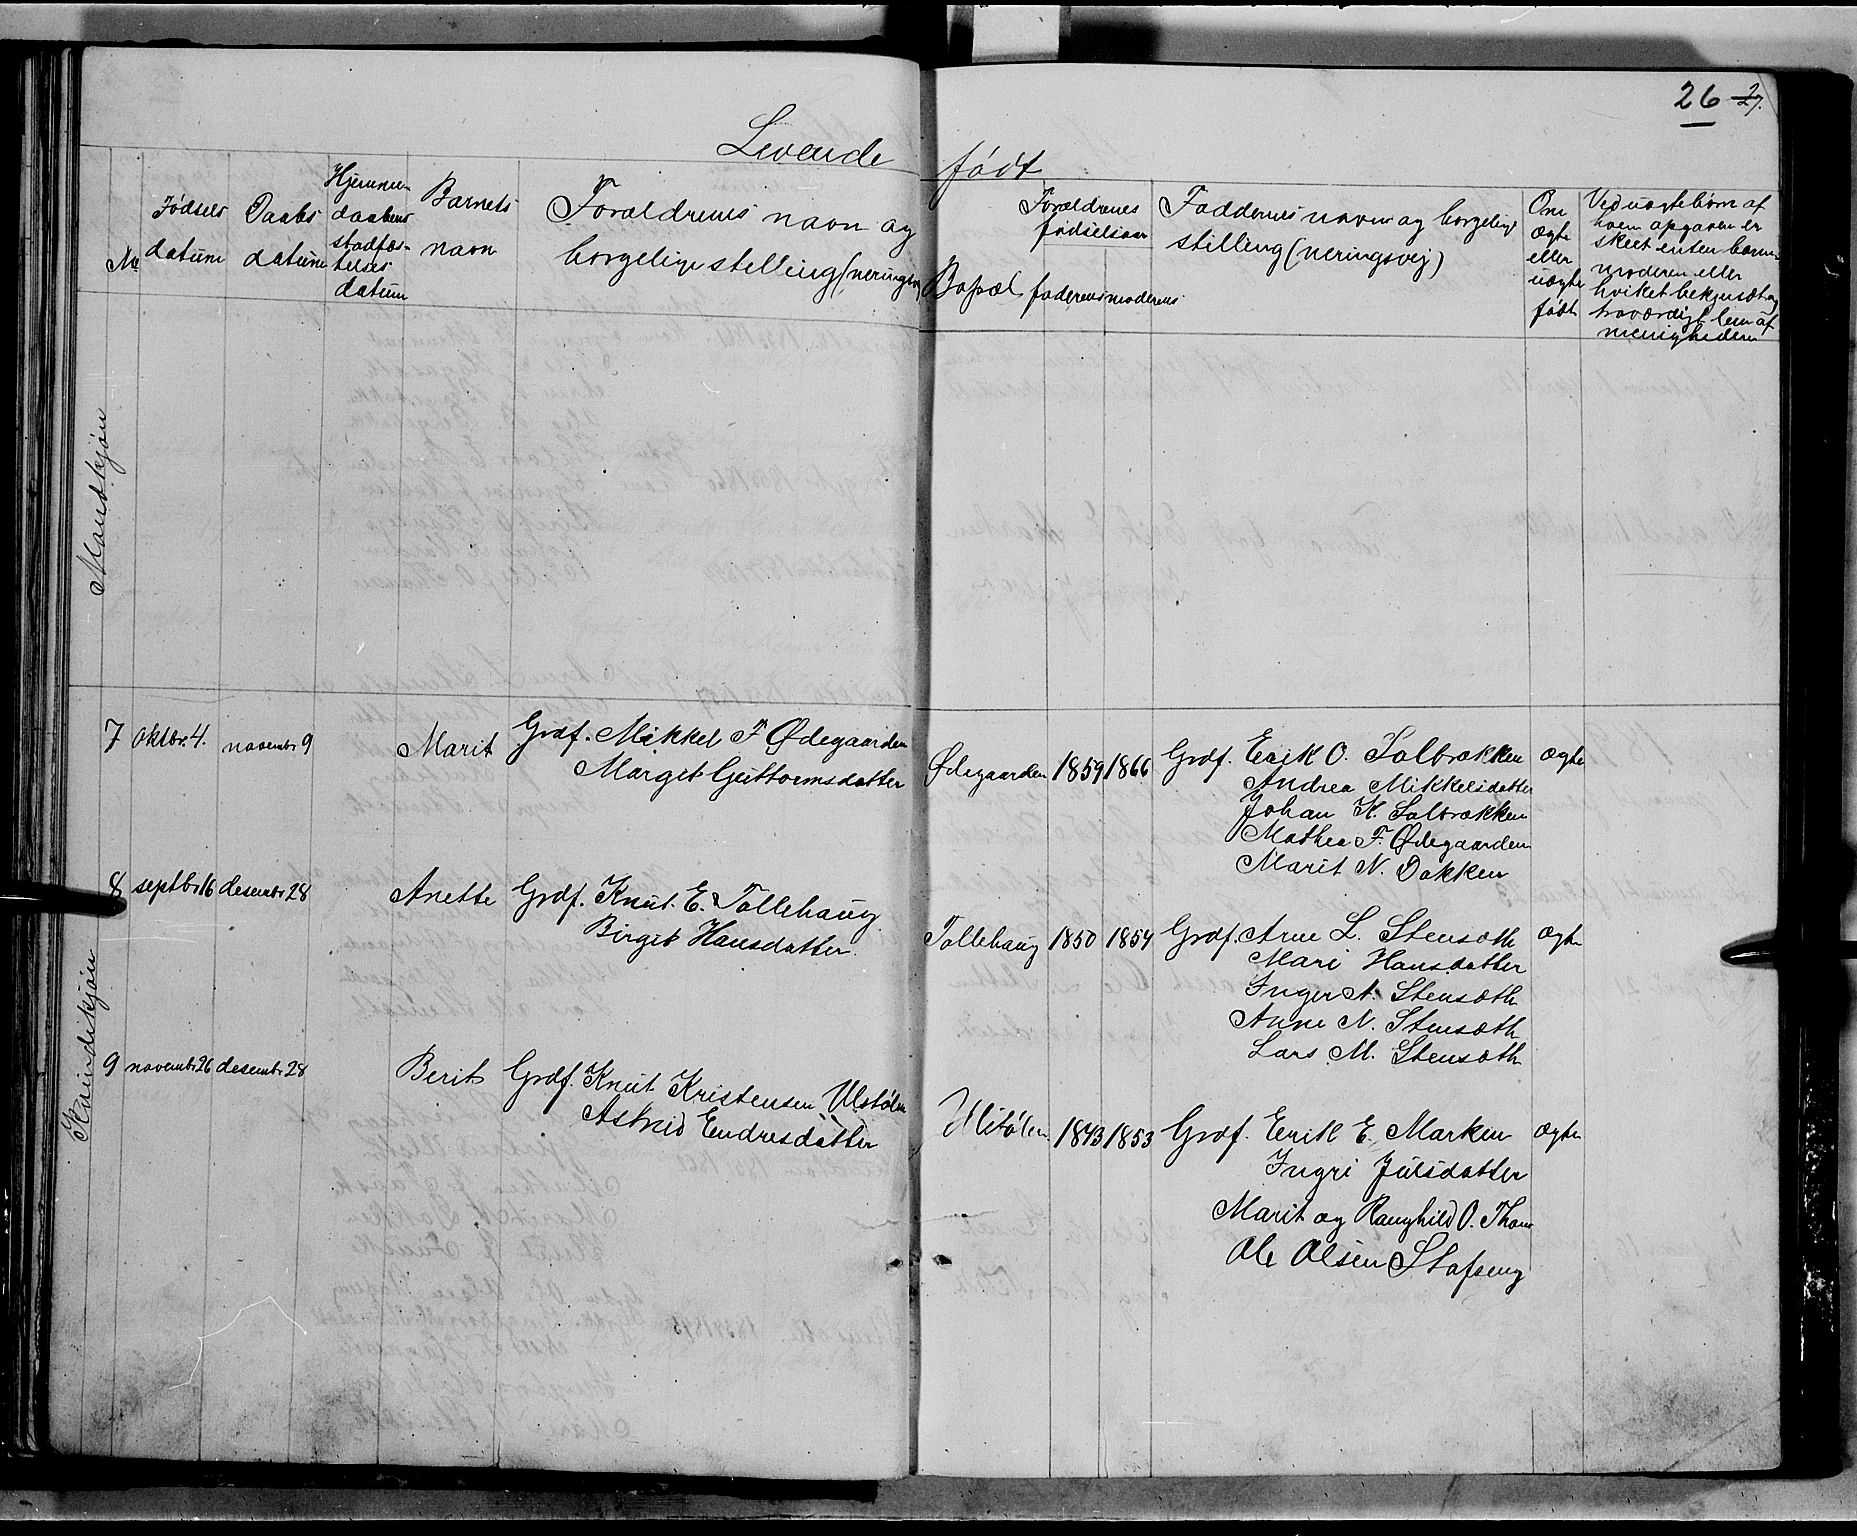 26 27.
Levende født
No
Fødsels
datum
Daabs
datum
Hjemme-
daabens
stadfæs-
telses
datum
Barnets
navn
Forældrenes navn og
borgelige stilling (neringsvej
Bopæl
Forældrenes
fødselsaar
faderens moderens
Faddernes navn og borgelige
stilling (neringsvej)
Om
ægte
eller
uægte
født
Ved uægte børn af
hvem opgaven er
skeet enten barne-
moderen eller
hvilket bekjendt og
troværdigt lem af
menigheden
Mandkjøn
Kvindekjøn
7 oktbr. 4. novembr 9 Marit Grdf. Mikkel F Ødegaarden
Marget Guttormsdatter
Ødegaarden 1859 1866 Grdf. Erik O. Solbrækken ægte
Andrea Mikkelsdatter
Johan K. Solbrækken
Mathea F. Ødegaarden
Marit N. Dokken
8 septbr 16 desembr 28 Anette Grdf. Knut. E. Tollehaug
Birget Hansdatter.
Tollehaug 1850 1854 Grdf. Arne L. Stensæth ægte
Mari Hansdatter
Inger A. Stensæth
Anne N. Stensæth
Lars M. Stensæth
9 novembr 26 desembr 28 Berit Grdf. Knut Kristensen Ulstølen
Astrid Endresdatter
Ulstølen 1843 1853 Grdf. Erik E. Marken ægte
Ingri Julsdatter
Marit og Ranghild O. Thon
Ole Olsen Stafseng